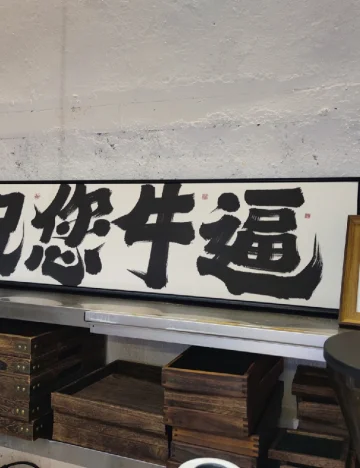 您牛逼